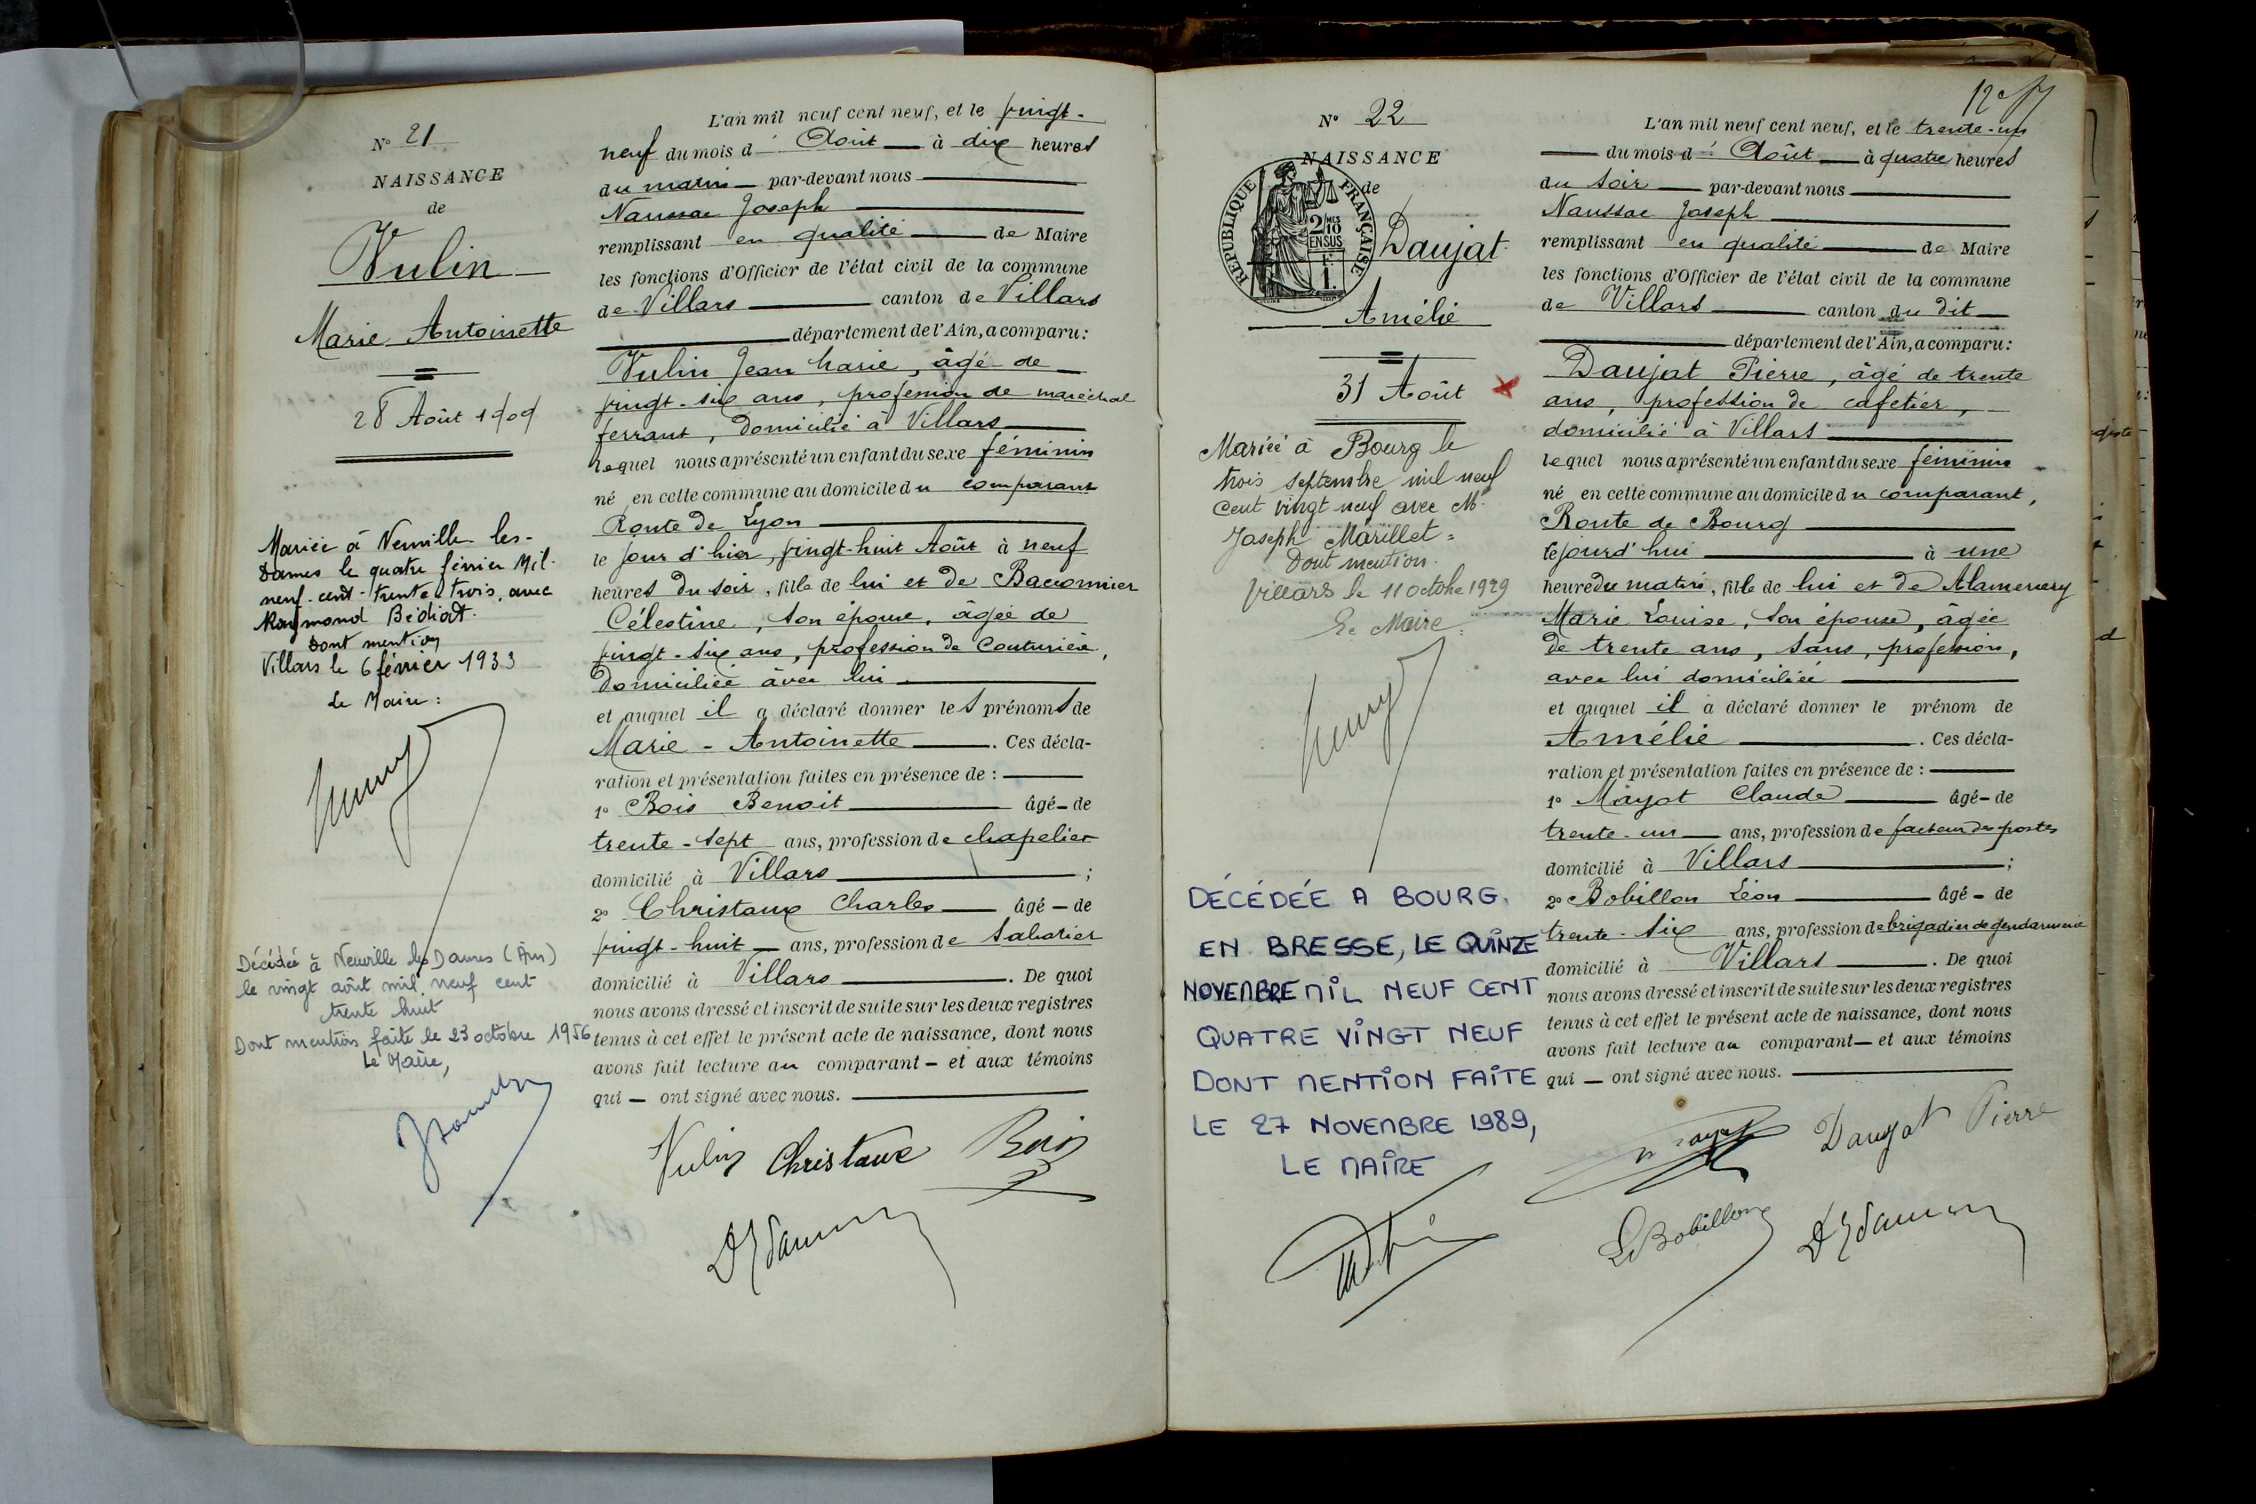 N° 21
NAISSANCE
de
Vulin
Marie Antoinette
28 Août 1909
Mariée à Neuville les-
Dames le quatre février Mil-
neuf-cent-trente-trois, avec
Raymond Bédiat.
Dont mention
Villars le 6 février 1933
Le Maire :
Décédée à Neuville les Dames (Ain)
le vingt août mil neuf cent
trente huit
Dont mention faite le 23 octobre 1956
Le Maire,
L'an mil neuf cent neuf, et le vingt-
neuf du mois d' Août à dix heures
du matin par-devant nous
Naussac Joseph
remplissant en qualité de Maire
les fonctions d'Officier de l'état civil de la commune
de Villars canton de Villars
département de l'Ain, a comparu :
Vulin Jean Marie, âgé de
vingt-six ans, profession de maréchal
ferrant, domicilié à Villars
lequel nous a présenté un enfant du sexe féminin
né en cette commune au domicile du comparant
Route de Lyon
le jour d'hier, vingt-huit Août à neuf
heures du soir, fille de lui et de Baconnier
Célestine, son épouse, âgée de
vingt-six ans, profession de Couturière,
domiciliée avec lui
et auquel il a déclaré donner les prénoms de
Marie-Antoinette. Ces décla-
ration et présentation faites en présence de :
1° Bois Benoit âgé - de
trente-sept ans, profession de chapelier
domicilié à Villars ;
2° Christaux Charles âgé - de
vingt-huit ans, profession de Sabotier
domicilié à Villars. De quoi
nous avons dressé et inscrit de suite sur les deux registres
tenus à cet effet le présent acte de naissance, dont nous
avons fait lecture au comparant - et aux témoins
qui - ont signé avec nous.
Vulin Christaux Bois
N° 22
NAISSANCE
de
RÉPUBLIQUE FRANÇAISE
2/10MES
EN SUS
1F
Daujat
Amélie
31 Août
Mariée à Bourg le
trois septembre mil neuf
cent vingt neuf avec M.
Joseph Marillet =
Dont mention.
Villars le 11 octobre 1929
Le Maire :
DÉCÉDÉE A BOURG.
EN BRESSE, LE QUINZE
NOVEMBRE MIL NEUF CENT
QUATRE VINGT NEUF
DONT MENTION FAITE
LE 27 NOVEMBRE 1989,
LE MAIRE
L'an mil neuf cent neuf, et le trente-un
du mois d' Août à quatre heures
du soir par-devant nous
Naussac Joseph
remplissant en qualité de Maire
les fonctions d'Officier de l'état civil de la commune
de Villars canton du dit
département de l'Ain, a comparu :
Daujat Pierre, âgé de trente
ans, profession de cafetier,
domicilié à Villars
lequel nous a présenté un enfant du sexe féminin
né en cette commune au domicile du comparant,
Route de Bourg
lejourd'hui à une
heure du matin, fille de lui et de
Marie Louise, son épouse, âgée
de trente ans, sans, profession,
avec lui domiciliée
et auquel il a déclaré donner le prénom de
Amélie. Ces décla-
ration et présentation faites en présence de :
1° Mayot Claude âgé - de
trente-un ans, profession de facteur des postes
domicilié à Villars ;
2° Bobillon Léon âgé - de
trente-six ans, profession de brigadier de gendarmerie
domicilié à Villars. De quoi
nous avons dressé et inscrit de suite sur les deux registres
tenus à cet effet le présent acte de naissance, dont nous
avons fait lecture au comparant - et aux témoins
qui - ont signé avec nous.
Daujat Pierre
L Bobillon